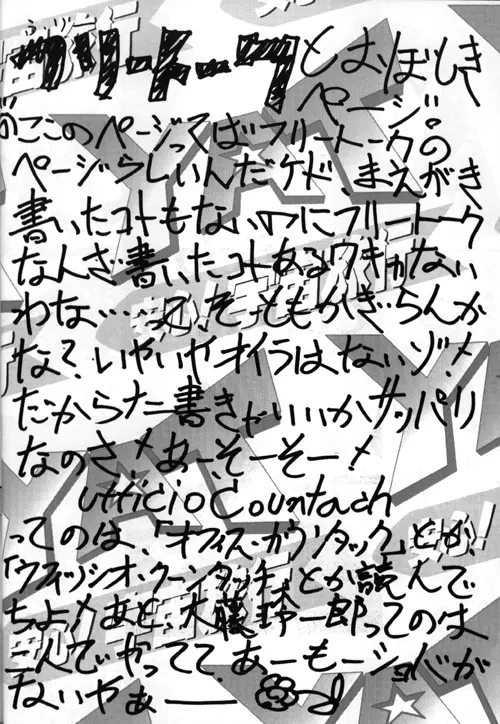 フリートークとおぼしき
ページ!
このページってばフリートークの
ページらしいんだケド、まえがき
書いたコトもないのにフリートーク
なんざ書いたコトあるワキャがない
わな…って、そーともかぎらんか
な?いやいやオイラはないゾ!
だからなに書きゃいいかサッパリ
なのさ!あ、そーそー!
ufficio Countach
ってのは、「オフィス・カウンタック」とか
「ウフィッシオ・クーンタッチ」とか読んで
ちょ!あと、大藤玲一郎ってのは
二人でやってて、あーもースペースが
ないやぁ——